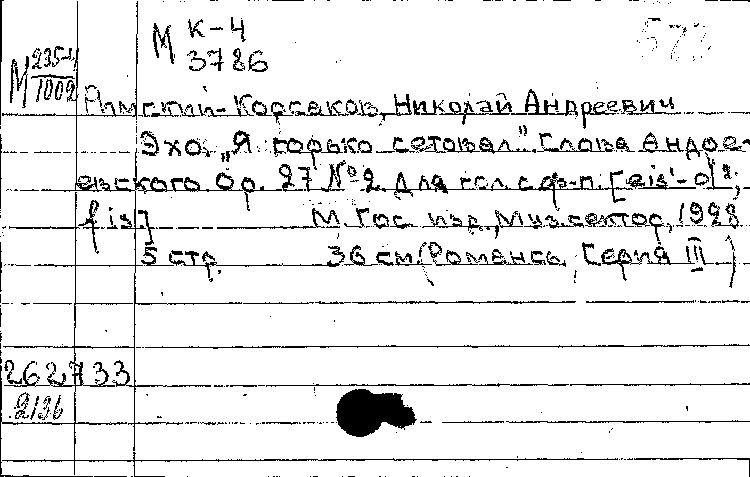 М К-4
3786
573
М 235-4
1002
Римский-Корсаков, Николай Андреевич
Эхо. „Я горько сетовал". Слова Андре-
евского Op. 27 №2. Для гол. с ф-п. [eis'-
fis]
М. Гос. изд., Муз. сектор, 1928
5 стр. 36 см (Романсы, Серия III)
262733
2136